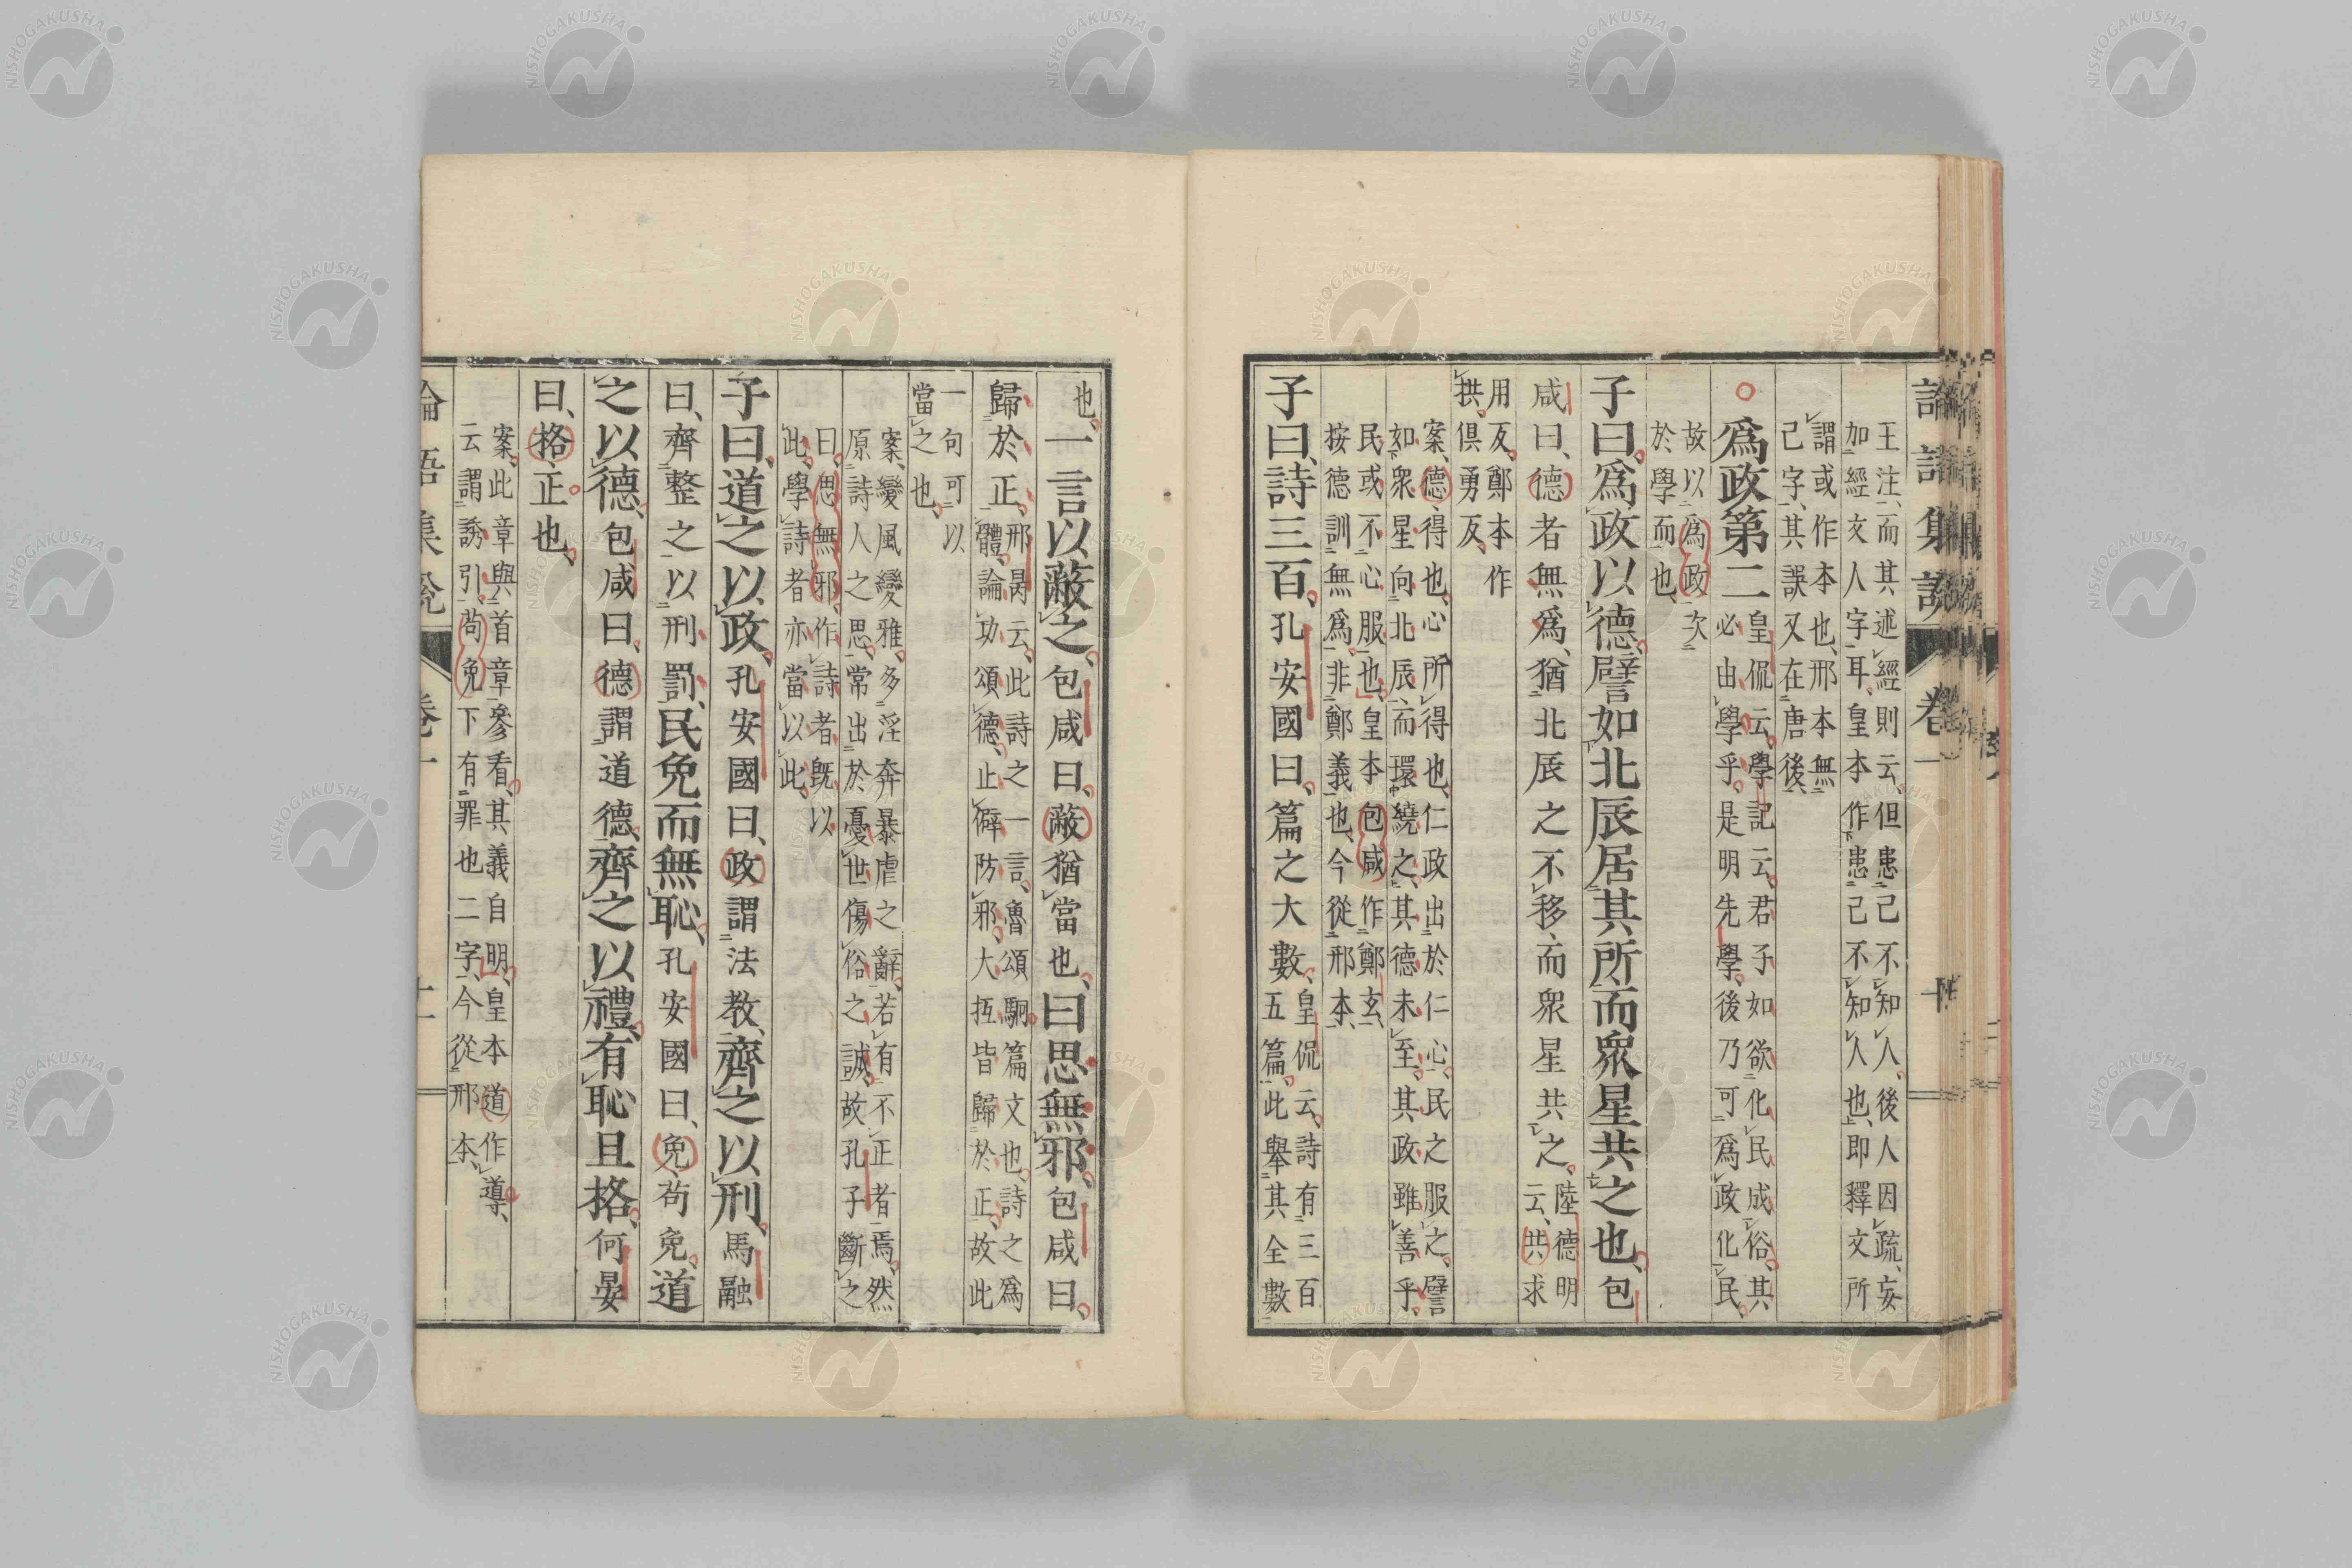 論語集說 卷一 十
王注而其述經則云但患己不知人後人因疏妄
加經文人字耳皇本作患己不知人也即釋文所
謂或作本也邢本無
己字其誤又在唐後
爲政第二
皇侃云學記云君子如欲化民成俗其
必由學乎是明先學後乃可爲政化民
故以爲政次
於學而也
子曰爲政以德譬如北辰居其所而衆星共之也包
咸曰德者無爲猶北辰之不移而衆星共之
陸德明
云共求
用反鄭本作
拱俱勇反
案德得也心所得也仁政出於仁心民之服之譬
如衆星向北辰而環繞之其德未至其政雖善乎
民或不心服也皇本包咸作鄭玄
按德訓無爲非鄭義也今從邢本
子曰詩三百孔安國曰篇之大數
皇侃云詩有三百
五篇此舉其全數
也
一言以蔽之包咸曰蔽猶當也曰思無邪包咸曰
歸於正
邢昺云此詩之一言魯頌駉篇文也詩之爲
體論功頌德止僻防邪大抵皆歸於正故此
一句可以
當之也
案變風變雅多淫奔暴虐之辭若有不正者焉然
原詩人之思常出於憂世傷俗之誠故孔子斷之
曰思無邪作詩者既以
此學詩者亦當以此
子曰道之以政孔安國曰政謂法教齊之以刑馬融
曰齊整之以刑罰民免而無恥孔安國曰免苟免道
之以德包咸曰德謂道德齊之以禮有恥且格何晏
曰格正也
案此章與首章參看其義自明皇本道作導
云謂誘引苟免下有罪也二字今從邢本
論語集說 卷一